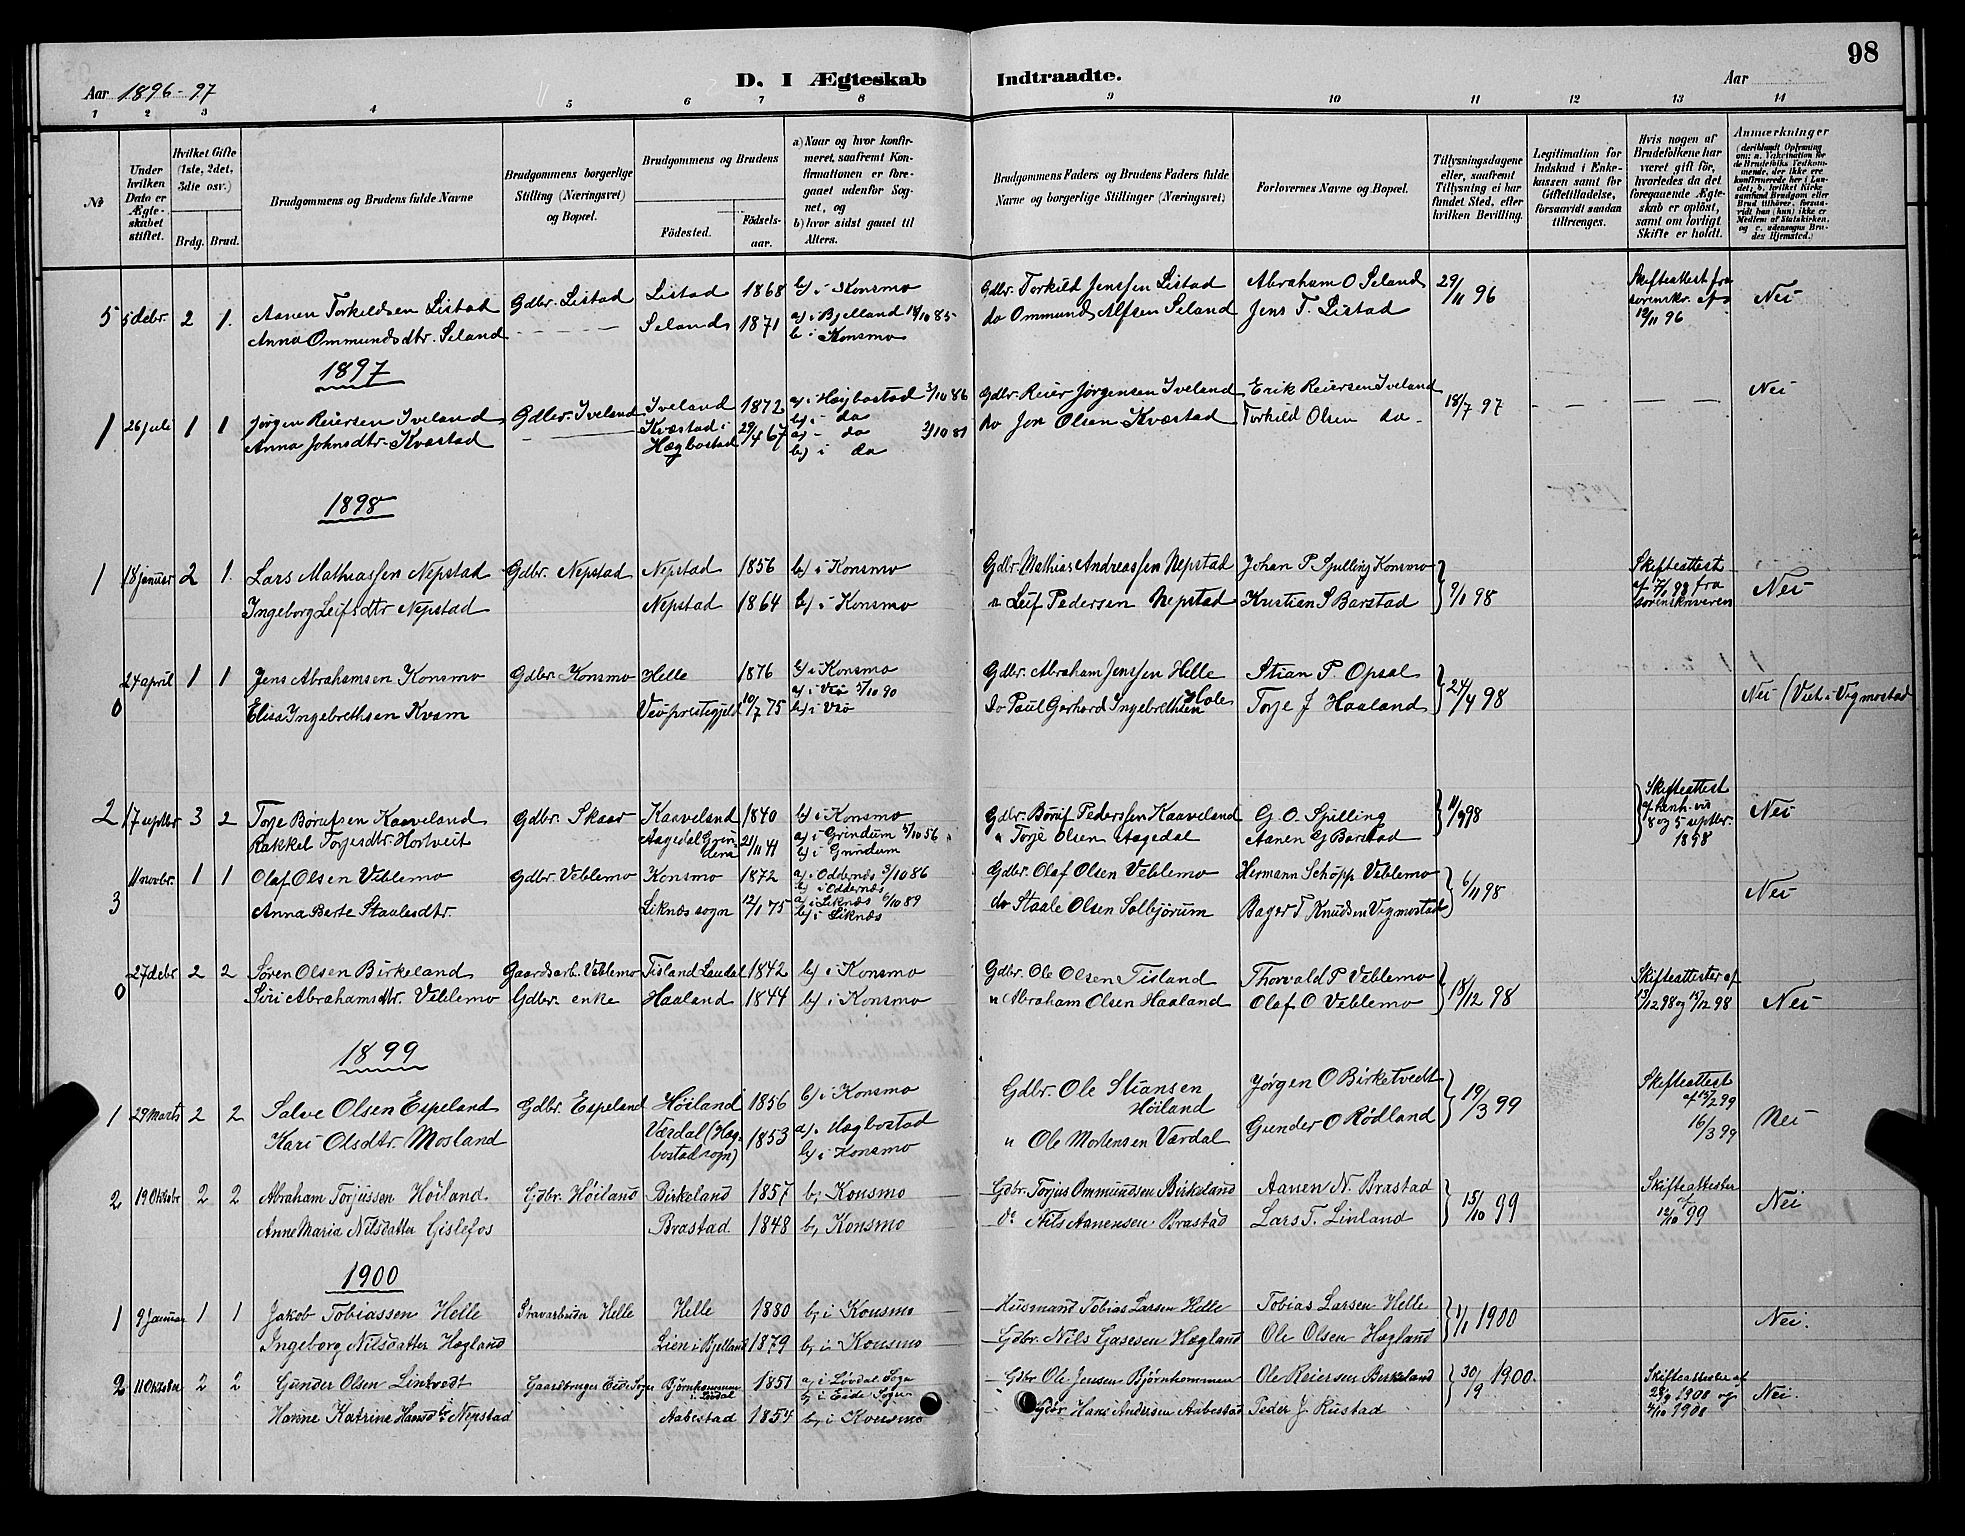 98
Aar 1896-97
D. I Ægteskab Indtraadte.
Aar
1 2 3 4 5 6 7 8 9 10 11 12 13 14
No
Under hvilken Dato er Ægteskabet stiftet.
Hvilket Gifte (1ste, 2det, 3die osv.)
Brdg. Brud.
Brudgommens og Brudens fulde Navne
Brudgommens borgerlige Stilling (Næringsvei) og Bopæl.
Brudgommens og Brudens
Födested.
Födselsaar.
a) Naar og hvor konfirmeret, saafremt Konfirmationen er foregaaet udenfor Sognet, og
b) hvor sidst gaaet til Alters.
Brudgommens Faders og Brudens Faders fulde Navne og borgerlige Stillinger (Næringsvei)
Forlovernes Navne og Bopæl.
Tillysningsdagene eller, saafremt Tillysning ei har fundet Sted, efter hvilken Bevilling.
Legitimation for Indskud i Enkekassen samt for Giftetilladelse, forsaavidt saadan tiltrænges.
Hvis nogen af Brudefolkene har været gift för, hvorledes da det foregaaende Ægteskab er oplöst, samt om lovligt Skifte er holdt.
Anmærkninger
5 5 debr. 2 1. Aanen Torkildsen Listad Gdbr. Listad Listad 1868 b) i Konsmo Gdbr. Torkild Jenssen Listad Abraham O Seland 29/11 96 Skifteattest fra sorenskr. af 12/11 96 Nei
Anna Ommundsdtr. Seland Seland 1871 a) i Bjelland b i Konsmo do Ommund Alfsen Seland Jens T. Listad
1897
1 26 juli 1 1 Jørgen Reiersen Iveland Gdbr. Iveland Iveland 1872 a) i Høgbostad 3/10 86 b) i do Gdbr. Reier Jørgensen Iveland Erik Reiersen Iveland 18/7 97 Nei
Anna Johnsdtr. Kvæstad Kvæstad i Hægbostad 29/4 67 a) - do b) i do do Jon Olsen Kvæstad Torkild Olsen do
1898
1 18 januar 2 1. Lars Mathiassen Nepstad Gdbr. Nepstad Nepstad 1856 b) i Konsmo Gdbr. Mathias Andreassen Nepstad Johan P. Spilling Konsmo 9/1 98 Skifteattest af 7/1 98 fra sorenskriveren Nei
Ingeborg Leifsdtr Nepstad Nepstad 1864 b) i Konsmo " Leif Pedersen Nepstad Kristian S Barstad
0 24 april 1 1 Jens Abrahamsen Konsmo Gdbr. Konsmo Helle 1876 b) i Konsmo Gdbr. Abraham Jenssen Helle Stian P. Opsal 24/4 98 Nei (Viet i Vigmostad
Elisa Ingebrethsen Kvam 10/7 75 a) i 5/10 90 b) i do Paul Gerhard Ingebrethsen Hole Torje J Haaland
2 17 septbr 3 2 Torje Børufsen Kaaveland Gdbr. Skaar Kaaveland 1840 b) i Konsmo Gdbr. Børuf Pederssen Kaaveland G. O. Spilling 11/9 98 Skifteattest af henh. vis 8 og 5 septbr. 1898 Nei
Rakkel Torjesdtr. Hortveit Aagedal Grindem 21/11 41 a) i Grindum 5/10 56 b) i Grindum " Torje Olsen Aagedal Aanen G Barstad
3 11 novbr. 1 1 Olaf Olsen Veblemo Gdbr. Veblemo Konsmo 1872 a) i Oddernæs 3/10 86 b) i Oddernæs Gdbr. Olaf Olsen Veblemo Hermann Schöpp Veblemo 6/11 98 Nei
Anna Berte Staalesdtr. Liknæs sogn 12/1 75 a) i Liknæs 6/10 89 b) i Liknæs do Staale Olsen Solbjørum Bager T Knudsen Vigmostad
0 27 debr 2 2 Søren Olsen Birkeland Gaardsarb. Veblemo Tisland Laudal 1842 b) i Konsmo Gdbr. Ole Olsen Tisland Thorvald P Veblemo 18/12 98 Skifteattester af 13/12 98 og 14/12 98 Nei
Siri Abrahamsdtr. Veblemo Gdbr. enke Haaland 1844 b) i Konsmo " Abraham Olsen Haaland Olaf O Veblemo
1899
1 29 Marts 2 2 Salve Olsen Espeland Gdbr. Espeland Höiland 1856 b) i Konsmo Gdbr. Ole Stiansen Höiland Jørgen O Birketvedt 19/3 99 Skifteattest af 15/2 99 16/3 99 Nei
Kari Olsdtr. Mosland Værdal (Hægbostad sogn) 1853 a). i Hægbostad b) i Konsmo " Ole Mortensen Værdal Gunder O Rødland
2 19 Oktobr 2 2 Abraham Torjussen Höiland Gdbr. Höiland Birkeland 1857 b, Konsmo Gdbr. Torjus Ommundsen Birkeland Aanen N. Brastad 15/10 99 Skifteattester af 12/10 99 Nei
Anne Maria Nilsdatter Gislefos Brastad 1848 b, Konsmo do Nils Aanensen Brastad Lars T. Linland
1900
1 9 Januar 1 1 Jakob Tobiassen Helle Helle 1880 b, i Konsmo Husmand Tobias Larsen Helle Tobias Larsen Helle 1/1 1900 Nei.
Ingeborg Nilsdatter Hægland Lien i Bjelland 1879 b, i Konsmo Gdbr. Nils Gasesen Hægland Ole Olsen Hægland
2 11 Oktober 2 2 Gunder Olsen Lintvedt Gaardbruger Eide Sogn Bjørnkommen i Lördal 1851 a, i Lövdal Sogn b, i Eide Sogn Gdbr Ole Jensen Bjørnkommen Ole Reiersen Birkeland 30/9 1900 Skifteattester af 28/9 1900 og 4/10 1900 Nei.
Hanne Katrine Hansdtr Nepstad Aabestad 1854 b, i Konsmo Gdbr Hans Andersen Aabestad Peder J Rustad